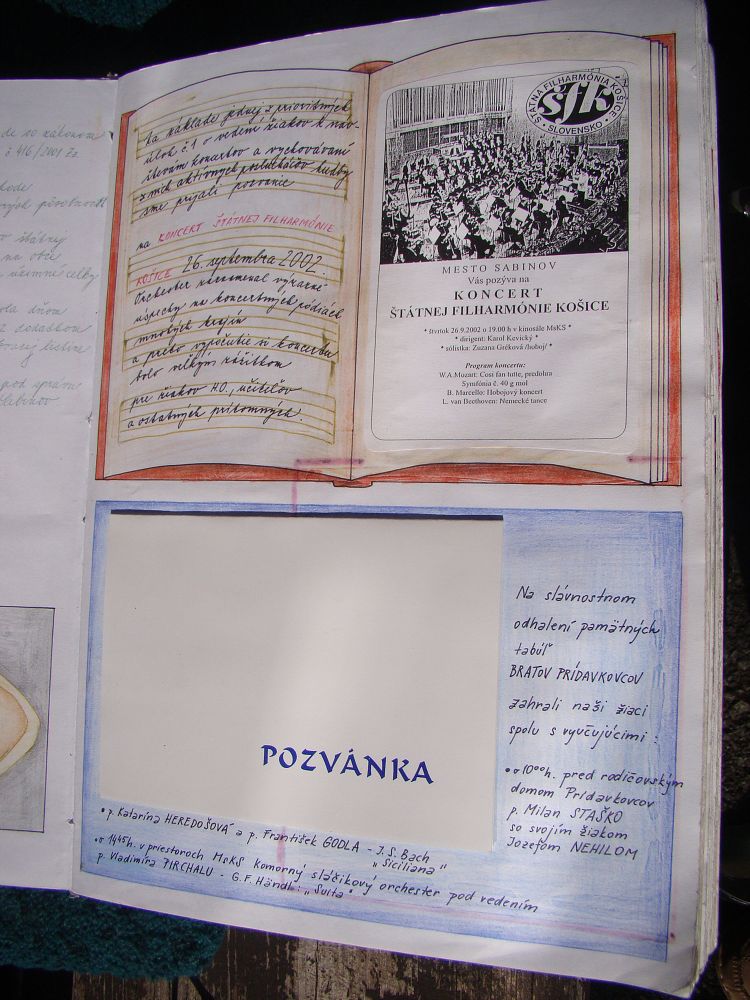 de so zákonom
č 416/2001 Zz
štátnej
na obce
Na základe jednej z prioritných
úloh č.1 o vedení žiakov k náv-
števam koncertov a vychovávaní
z nich aktívnych poslucháčov hudby
sme prijali pozvanie
na KONCERT ŠTÁTNEJ FILHARMÓNIE
KOŠICE 26. septembra 2002.
Orchester zaznamenal výrazné
úspechy na koncertných pódiách
mnohých krajín
a preto vypočutie si koncertu
bolo veľkým zážitkom
pre žiakov H.O., učiteľov
a ostatných prítomných.
ŠTÁTNA FILHARMÓNIA KOŠICE
šfk
• SLOVENSKO •
MESTO SABINOV
Vás pozýva na
KONCERT
ŠTÁTNEJ FILHARMÓNIE KOŠICE
* štvrtok 26.9.2002 o 19.00 h v kinosále MsKS *
* dirigent: Karol Kevický *
* sólistka: Zuzana Gréková /hoboj/ *
Program koncertu:
W.A.Mozart: Cosi fan tutte, predohra
Symfónia č. 40 g mol
B. Marcello: Hobojový koncert
L. van Beethoven: Nemecké tance
POZVÁNKA
Na slávnostnom
odhalení pamätných
tabúľ
BRATOV PRÍDAVKOVCOV
zahrali naši žiaci
spolu s vyučujúcimi :
• o 10ºº h. pred rodičovským
domom Prídavkovcov
p. Milan STAŠKO
so svojim žiakom
Jozefom NEHILOM
• p. Katarína HEREDOŠOVÁ a p. František GODLA - J.S. Bach
"Siciliana"
• o 14⁴⁵h. v priestoroch MsKS Komorný sláčikový orchester pod vedením
p. Vladimíra PIRCHALU - G.F. Händl: „Suita"